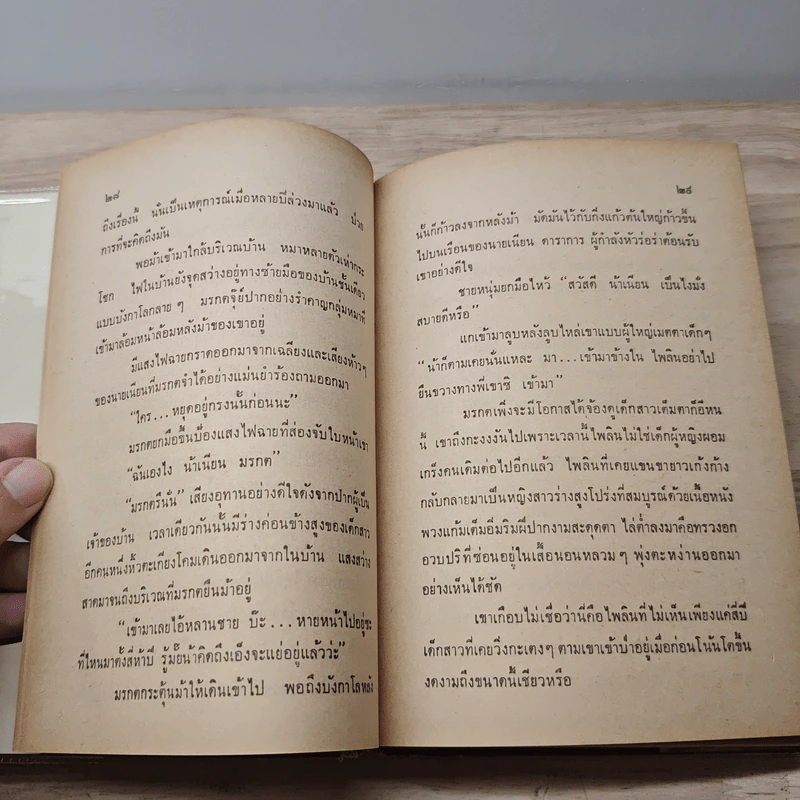 ๒๘
ถึงเรื่องนี้ นั่นเป็นเหตุการณ์เมื่อหลายปีล่วงมาแล้ว ป่วย
การที่จะคิดถึงมัน
พอม้าเข้ามาใกล้บริเวณบ้าน หมาหลายตัวเห่ากระ
โชก ไฟในบ้านยังจุดสว่างอยู่ทางซ้ายมือของบ้านชั้นเดียว
แบบบังกาโลกลาย ๆ มรกตจุ๊ย์ปากอย่างรำคาญกลุ่มหมาที่
เข้ามาล้อมหน้าล้อมหลังม้าของเขาอยู่
มีแสงไฟฉายกราดออกมาจากเฉลียงและเสียงห้าวๆ
ของนายเนียนที่มรกตจำได้อย่างแม่นยำร้องถามออกมา
“ใคร...หยุดอยู่ตรงนั้นก่อนนะ”
มรกตยกมือขึ้นป้องแสงไฟฉายที่ส่องจับใบหน้าเขา
“ฉันเองไง น้าเนียน มรกต”
“มรกตรึนั่น” เสียงอุทานอย่างดีใจดังจากปากผู้เป็น
เจ้าของบ้าน เวลาเดียวกันนั้นมีร่างค่อนข้างสูงของเด็กสาว
อีกคนหนึ่งหิ้วตะเกียงโคมเดินออกมาจากในบ้าน แสงสว่าง
สาดมาจนถึงบริเวณที่มรกตยืนม้าอยู่
“เข้ามาเลยไอ้หลานชาย บ๊ะ...หายหน้าไปอยู่ซะ
ที่ไหนมาตั้งสี่ห้าปี รู้มั๊ยน้าคิดถึงเอ็งจะแย่อยู่แล้วว่ะ”
มรกตกระตุ้นม้าให้เดินเข้าไป พอถึงบังกาโลหลัง
๒๙
นั้นก็ก้าวลงจากหลังม้า มัดมันไว้กับกิ่งแก้วต้นใหญ่ก้าวขึ้น
ไปบนเรือนของนายเนียน ดาราการ ผู้กำลังหัวร่อร่าต้อนรับ
เขาอย่างดีใจ
ชายหนุ่มยกมือไหว้ “สวัสดี น้าเนียน เป็นไงมั่ง
สบายดีหรือ”
แกเข้ามาลูบหลังลูบไหล่เขาแบบผู้ใหญ่เมตตาเด็กๆ
“น้าก็ตามเคยนั่นแหละ มา...เข้ามาข้างใน ไพลินอย่าไป
ยืนขวางทางพี่เขาซิ เข้ามา”
มรกตเพิ่งจะมีโอกาสได้จ้องดูเด็กสาวเต็มตาก็อีหน
นี้ เขาถึงกะงงงันไปเพราะเวลานี้ไพลินไม่ใช่เด็กผู้หญิงผอม
เกร็งคนเดิมต่อไปอีกแล้ว ไพลินที่เคยแขนขายาวเก้งก้าง
กลับกลายมาเป็นหญิงสาวร่างสูงโปร่งที่สมบูรณ์ด้วยเนื้อหนัง
พวงแก้มเต็มอิ่มริมฝีปากงามสะดุดตา ไล่ต่ำลงมาคือทรวงอก
อวบปริที่ซ่อนอยู่ในเสื้อนอนหลวมๆ พุ่งตะหง่านออกมา
อย่างเห็นได้ชัด
เขาเกือบไม่เชื่อว่านี่คือไพลินที่ไม่เห็นเพียงแค่สี่ปี
เด็กสาวที่เคยวิ่งกะเตงๆ ตามเขาเข้าป่าอยู่เมื่อก่อนโน้นโตขึ้น
งดงามถึงขนาดนี้เชียวหรือ